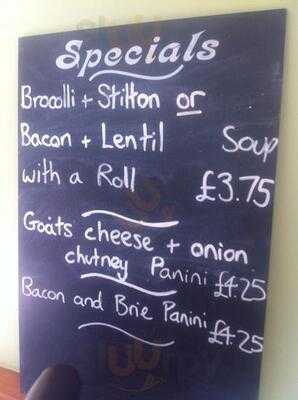 Specials
Brocolli + Stilton or
Bacon + Lentil Soup
with a Roll £3.75
Goats cheese + onion
chutney Panini £4.25
Bacon and Brie Panini
£4.25